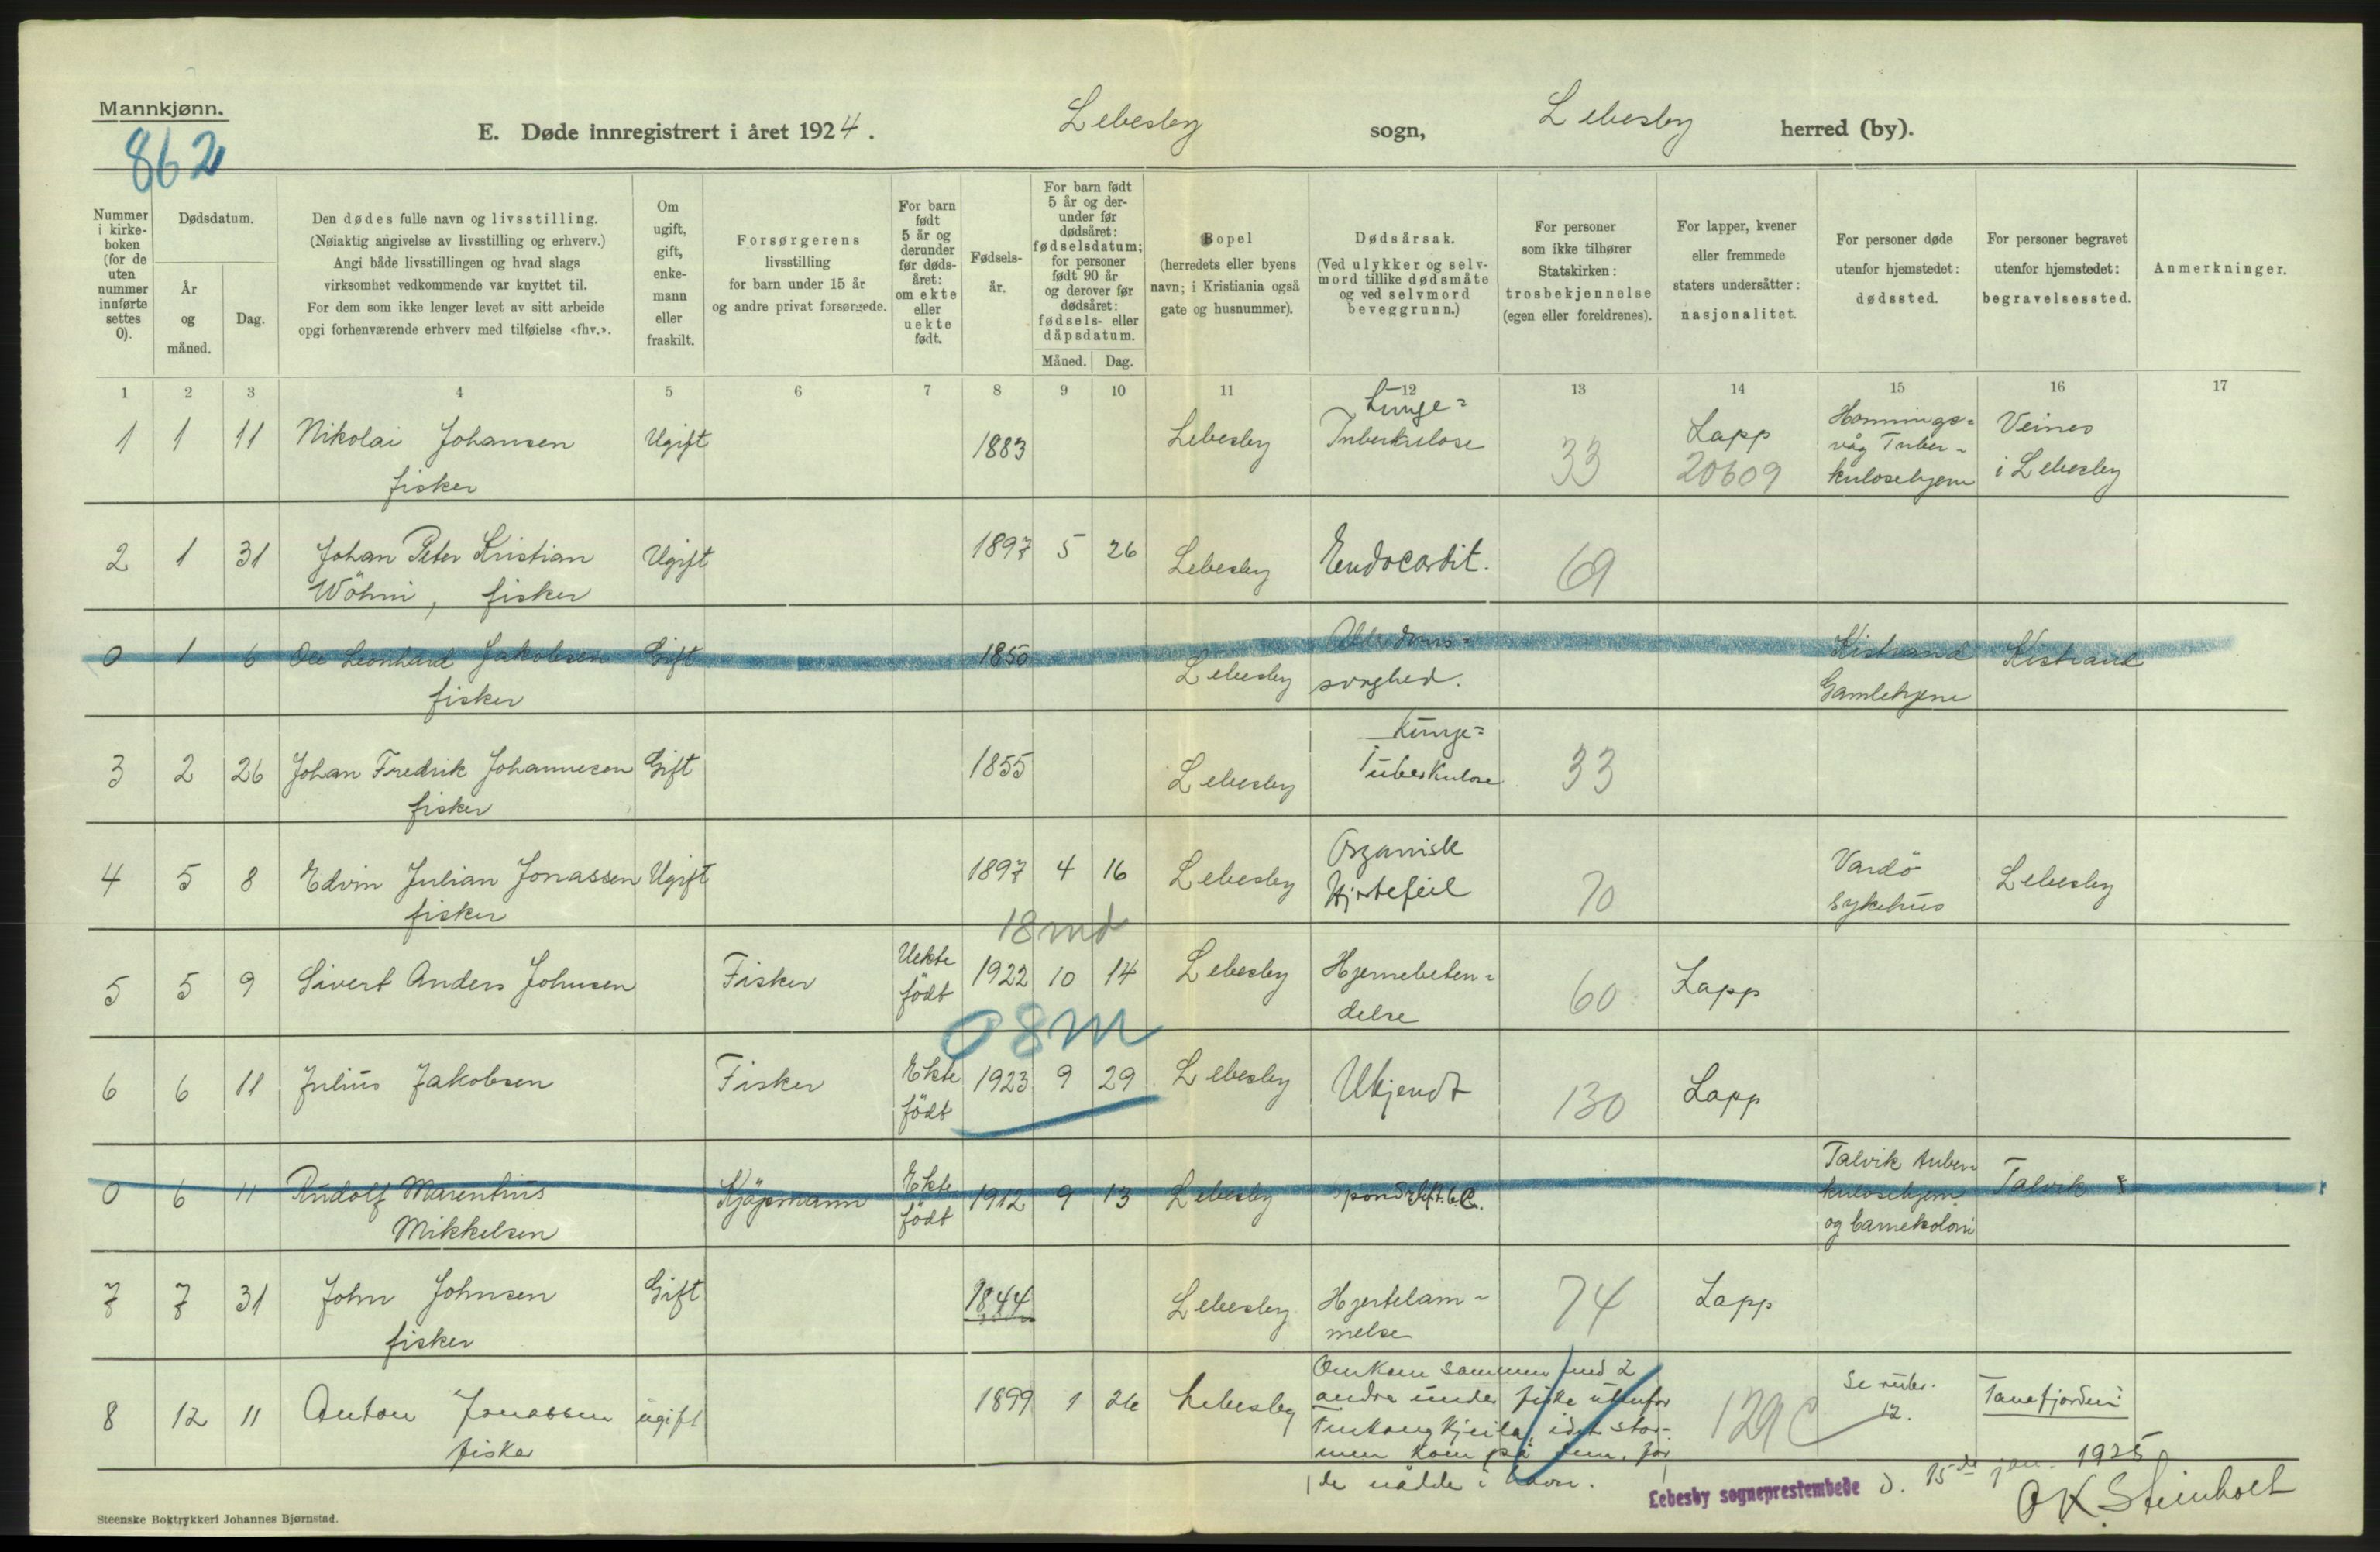 Mannkjønn.
862
E. Døde innregistrert i året 1924.
Lebesby sogn, Lebesby herred (by).
Nummer i kirke-boken (for de uten nummer innførte settes 0).
Dødsdatum.
År og måned.
Dag.
Den dødes fulle navn og livsstilling.
(Nøiaktig angivelse av livsstilling og erhverv.)
Angi både livsstillingen og hvad slags
virksomhet vedkommende var knyttet til.
For dem som ikke lenger levet av sitt arbeide
opgi forhenværende erhverv med tilføielse «fhv.».
Om ugift, gift, enke-mann eller fraskilt.
Forsørgerens livsstilling for barn under 15 år og andre privat forsørgede.
For barn født 5 år og derunder før døds-året: om ekte eller uekte født.
Fødsels-år.
For barn født 5 år og der-under før dødsåret: fødselsdatum; for personer født 90 år og derover før dødsåret: fødsels- eller dåpsdatum.
Måned. Dag.
Bopel (herredets eller byens navn; i Kristiania også gate og husnummer).
Dødsårsak. (Ved ulykker og selv-mord tillike dødsmåte og ved selvmord beveggrunn.)
For personer som ikke tilhører Statskirken: trosbekjennelse (egen eller foreldrenes).
For lapper, kvener eller fremmede staters undersåtter: nasjonalitet.
For personer døde utenfor hjemstedet: dødssted.
For personer begravet utenfor hjemstedet: begravelsessted.
Anmerkninger.
1 2 3 4 5 6 7 8 9 10 11 12 13 14 15 16 17
1 1 11 Nikolai Johansen fisker Ugift 1883 Lebesby Lunge= Tuberkulose 33 Lapp 20609 Honnings= våg Tuber= kulosehjem Veines i Lebesby
2 1 31 Johan Peter Kristian Wöhni, fisker Ugift 1897 5 26 Lebesby Endocardit. 69
0 1 6 Ole Leonhard Jakobsen fisker Gift 1850 Lebesby Alderdoms= svaghed. Kistrand Gamlehjem Kistrand
3 2 26 Johan Fredrik Johannesen fisker Gift 1855 Lebesby Lunge= Tuberkulose 33
4 5 8 Edvin Julian Jonassen fisker Ugift 1897 4 16 Lebesby Organisk Hjertefeil 70 Vardö sykehus Lebesby
18 md
5 5 9 Sivert Anders Johnsen Fisker Uekte födt 1922 10 14 Lebesby Hjernebeten= delse 60 Lapp
08m
6 6 11 Julius Jakobsen Fisker Ekte födt 1923 9 29 Lebesby Ukjendt 130 Lapp
0 6 11 Rudolf Marentius Mikkelsen Kjöpmann Ekte födt 1912 9 13 Lebesby Talvik tuber= kulosehjem og barnekoloni Talvik
7 7 31 John Johnsen fisker Gift 1844 Lebesby Hjertelam= melse 74 Lapp
8 12 11 Anton Jonassen fisker ugift 1899 1 26 Lebesby Omkom sammen med 2
andre under fiske utenfor
idet stor-
men kom på dem, før
de nådde i havn.
129 C
Se rubr. 12.
Tanafjorden
Lebesby sogneprestembede d. 15de jan. 1925
O K Steinholt
Steenske Boktrykkeri Johannes Bjørnstad.